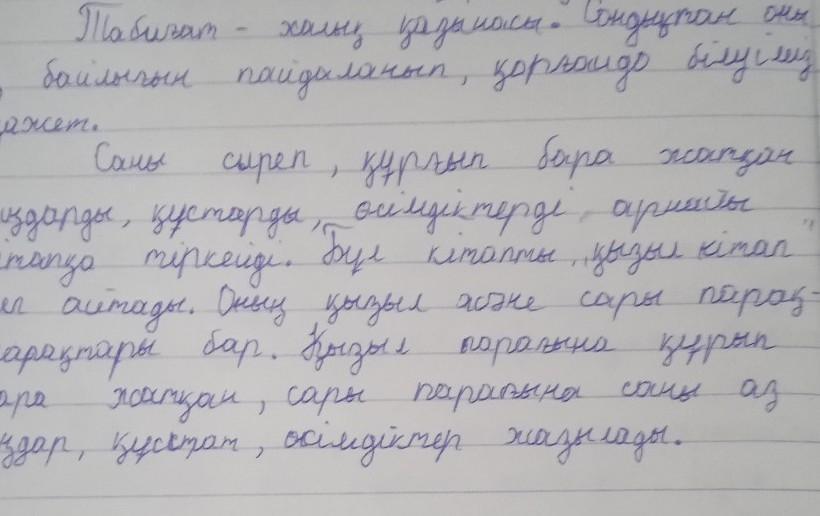 Табиғат - халық қазынасы. Сондықтан оны
байлығын пайдаланып, қорғайда білуіміз
ажет.
Саны сиреп, құрғып бара жатқан
ңдарды, құстарды, өсімдіктерді арнайы
тапқа тіркейді. Бұл кітапты „қызыл кітап"
еп айтады. Оның қызыл және сары парақ-
арақтары бар. Қызыл парағына құрып
ара жатқан, сары парағына саны аз
ңдар, құстат, өсімдіктер жазылады.